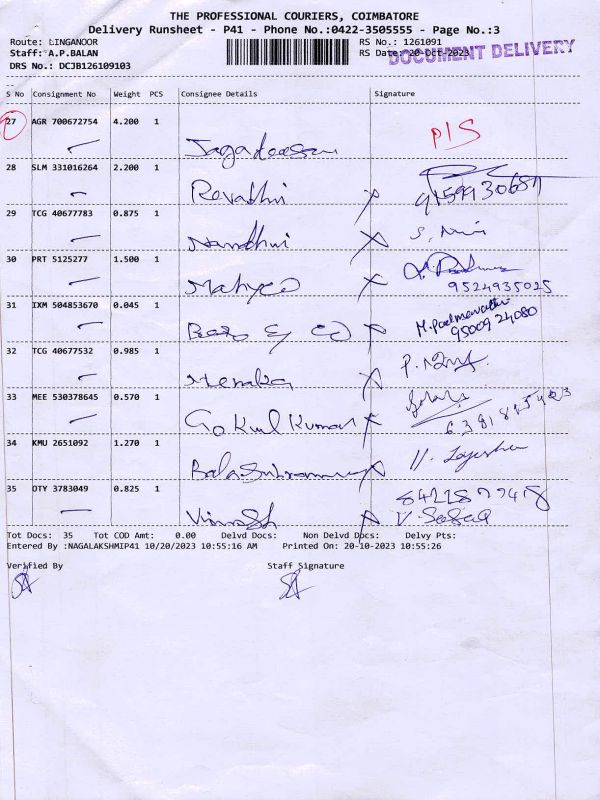 THE PROFESSIONAL COURIERS, COIMBATORE
Delivery Runsheet - P41 - Phone No.:0422-3505555 - Page No.:3
Route: LINGANOOR RS No.: 1261091
Staff:A.P.BALAN RS Date: 20-Oct-2023
DOCUMENT DELIVERY
DRS No.: DCJB126109103
S No Consignment No Weight PCS Consignee Details Signature
27 AGR 700672754 4.200 1
P/S
Jagadeesan
28 SLM 331016264 2.200 1
Revathi X 9159930687
29 TCG 40677783 0.875 1
Nandhini X
30 PRT 5125277 1.500 1
Mahyco X
9524935025
31 IXM 504853670 0.045 1
M. Padmavathi
X 95009 24080
32 TCG 40677532 0.985 1
Menaka X
33 MEE 530378645 0.570 1
Gokul Kumar X
34 KMU 2651092 1.270 1
X
35 OTY 3783049 0.825 1
Vinoth X
Tot Docs: 35 Tot COD Amt: 0.00 Delvd Docs: Non Delvd Docs: Delvy Pts:
Entered By :NAGALAKSHMIP41 10/20/2023 10:55:16 AM Printed On: 20-10-2023 10:55:26
Verified By Staff Signature